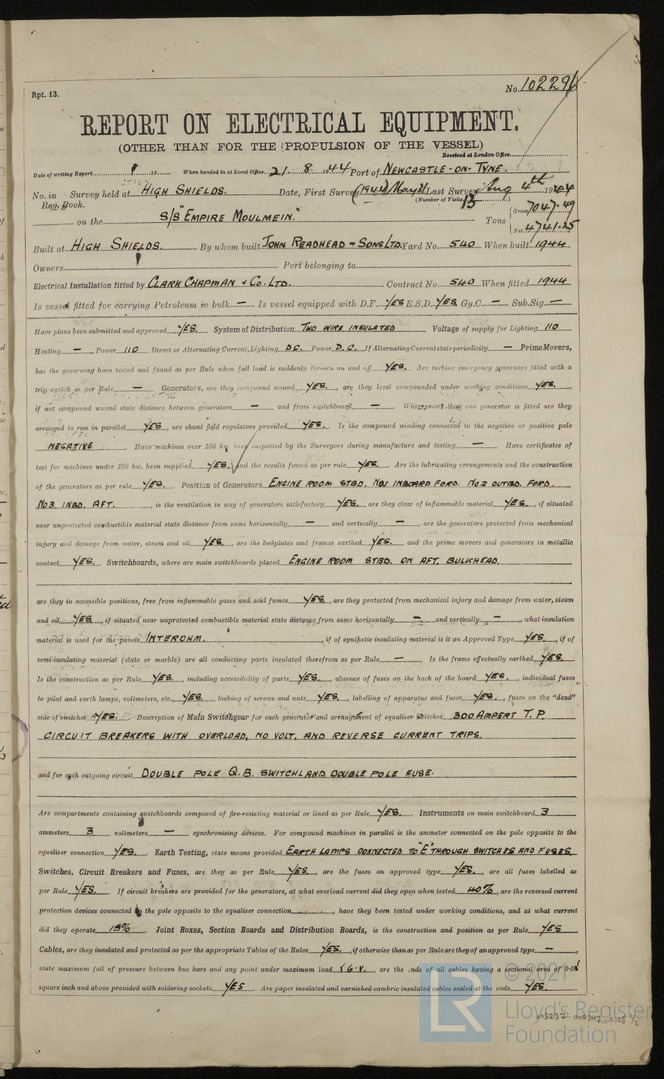 Rpt. 13.
No. 102296
REPORT ON ELECTRICAL EQUIPMENT.
(OTHER THAN FOR THE PROPULSION OF THE VESSEL)
Received at London Office
Date of writing Report 19 When handed in at Local Office 21. 8. 1944 Port of NEWCASTLE-ON-TYNE.
No. in Survey held at HIGH SHIELDS. Date, First Survey (1943) May 21 Last Survey Aug 4th 1944
Reg. Book. (Number of Visits 13)
on the S/S "EMPIRE MOULMEIN" Tons Gross 7047.49
Net 4741.25
Built at HIGH SHIELDS. By whom built JOHN READHEAD & SONS LTD. Yard No. 540 When built 1944
Owners Port belonging to
Electrical Installation fitted by CLARK CHAPMAN & CO. LTD. Contract No. 540 When fitted 1944
Is vessel fitted for carrying Petroleum in bulk — Is vessel equipped with D.F. YES E.S.D. YES Gy.C. — Sub.Sig —
Have plans been submitted and approved YES. System of Distribution TWO WIRE INSULATED Voltage of supply for Lighting 110
Heating — Power 110 Direct or Alternating Current, Lighting D.C. Power D.C. If Alternating Current state periodicity — Prime Movers,
has the governing been tested and found as per Rule when full load is suddenly thrown on and off YES. Are turbine emergency governors fitted with a
trip switch as per Rule — Generators, are they compound wound YES, are they level compounded under working conditions YES.,
if not compound wound state distance between generators — and from switchboard — Where more than one generator is fitted are they
arranged to run in parallel YES, are shunt field regulators provided YES. Is the compound winding connected to the negative or positive pole
NEGATIVE Have machines over 100 kw. been inspected by the Surveyors during manufacture and testing — Have certificates of
test for machines under 100 kw. been supplied YES. and the results found as per rule YES. Are the lubricating arrangements and the construction
of the generators as per rule YES. Position of Generators ENGINE ROOM STBD. NO.1 INBOARD FORD. NO.2 OUTBD. FORD.
NO.3 INBD. AFT., is the ventilation in way of generators satisfactory YES. are they clear of inflammable material YES., if situated
near unprotected combustible material state distance from same horizontally — and vertically —, are the generators protected from mechanical
injury and damage from water, steam and oil YES. are the bedplates and frames earthed YES. and the prime movers and generators in metallic
contact YES. Switchboards, where are main switchboards placed ENGINE ROOM STBD. ON AFT. BULKHEAD.
are they in accessible positions, free from inflammable gases and acid fumes YES., are they protected from mechanical injury and damage from water, steam
and oil YES., if situated near unprotected combustible material state distance from same horizontally — and vertically —, what insulation
material is used for the panels INTEROHM., if of synthetic insulating material is it an Approved Type YES., if of
semi-insulating material (slate or marble) are all conducting parts insulated therefrom as per Rule — Is the frame effectually earthed YES.
Is the construction as per Rule YES., including accessibility of parts YES., absence of fuses on the back of the board YES., individual fuses
to pilot and earth lamps, voltmeters, etc. YES. locking of screws and nuts YES., labelling of apparatus and fuses YES., fuses on the "dead"
side of switches YES. Description of Main Switchgear for each generator and arrangement of equaliser switches 300 AMPERT T.P.
CIRCUIT BREAKERS WITH OVERLOAD, NO VOLT, AND REVERSE CURRENT TRIPS.
and for each outgoing circuit DOUBLE POLE Q.B. SWITCH AND DOUBLE POLE FUSE.
Are compartments containing switchboards composed of fire-resisting material or lined as per Rule YES. Instruments on main switchboard 3
ammeters 3 voltmeters — synchronising devices. For compound machines in parallel is the ammeter connected on the pole opposite to the
equaliser connection YES. Earth Testing, state means provided EARTH LAMPS CONNECTED TO "E" THROUGH SWITCHES AND FUSES
Switches, Circuit Breakers and Fuses, are they as per Rule YES., are the fuses an approved type YES., are all fuses labelled as
per Rule YES. If circuit breakers are provided for the generators, at what overload current did they open when tested 40%, are the reversed current
protection devices connected on the pole opposite to the equaliser connection, have they been tested under working conditions, and at what current
did they operate 15% Joint Boxes, Section Boards and Distribution Boards, is the construction and position as per Rule YES
Cables, are they insulated and protected as per the appropriate Tables of the Rules YES., if otherwise than as per Rule are they of an approved type —
state maximum fall of pressure between bus bars and any point under maximum load <6.V., are the ends of all cables having a sectional area of 0.04
square inch and above provided with soldering sockets YES Are paper insulated and varnished cambric insulated cables sealed at the ends YES.
© 2021
LR
Lloyd's Register
Foundation